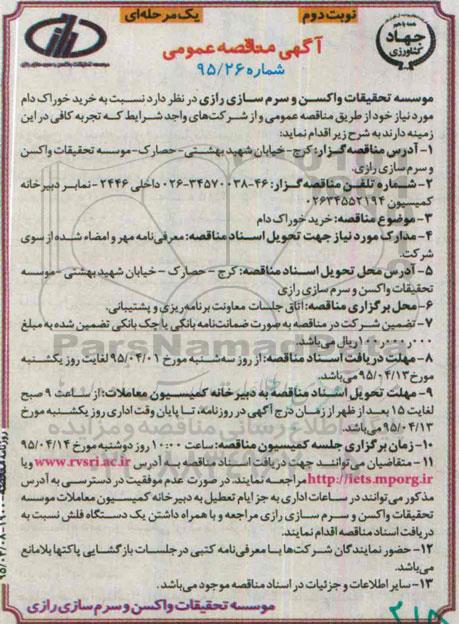 نوبت دوم
یک مرحله‌ای
جهاد کشاورزی
موسسه تحقیقات واکسن و سرم سازی رازی
آگهی مناقصه عمومی
شماره ۹۵/۲۶
موسسه تحقیقات واکسن و سرم سازی رازی در نظر دارد نسبت به خرید خوراک دام
مورد نیاز خود از طریق مناقصه عمومی و از شرکت‌های واجد شرایط که تجربه کافی در این
زمینه دارند به شرح زیر اقدام نماید:
۱- آدرس مناقصه گزار: کرج- خیابان شهید بهشتی - حصارک- موسسه تحقیقات واکسن
و سرم سازی رازی.
۲- شماره تلفن مناقصه گزار: ۴۶-۳۴۵۷۰۰۳۸-۰۲۶ داخلی ۲۴۴۶ - نمابر دبیرخانه
کمیسیون ۰۲۶۳۴۵۵۲۱۹۴
۳- موضوع مناقصه: خرید خوراک دام
۴- مدارک مورد نیاز جهت تحویل اسناد مناقصه: معرفی‌نامه مهر و امضاء شده از سوی
شرکت.
۵- آدرس محل تحویل اسناد مناقصه: کرج - حصارک - خیابان شهید بهشتی - موسسه
تحقیقات واکسن و سرم سازی رازی
۶- محل برگزاری مناقصه: اتاق جلسات معاونت برنامه‌ریزی و پشتیبانی.
۷- تضمین شرکت در مناقصه به صورت ضمانت‌نامه بانکی یا چک بانکی تضمین شده به مبلغ
ریال می‌باشد.
۸- مهلت دریافت اسناد مناقصه: از روز سه‌شنبه مورخ ۹۵/۰۴/۰۱ لغایت روز یکشنبه
مورخ ۹۵/۰۴/۱۳ می‌باشد.
۹- مهلت تحویل اسناد مناقصه به دبیرخانه کمیسیون معاملات: از ساعت ۹ صبح
لغایت ۱۵ بعد از ظهر از زمان درج آگهی در روزنامه، تا پایان وقت اداری روز یکشنبه مورخ
۹۵/۰۴/۱۳ می‌باشد.
۱۰- زمان برگزاری جلسه کمیسیون مناقصه: ساعت ۱۰:۰۰ روز دوشنبه مورخ ۹۵/۰۴/۱۴
۱۱- متقاضیان می‌توانند جهت دریافت اسناد مناقصه به آدرس www.rvsri.ac.ir و یا
http://iets.mporg.ir مراجعه نمایند. در صورت عدم موفقیت در دسترسی به آدرس
مذکور می‌توانند در ساعات اداری به جز ایام تعطیل به دبیرخانه کمیسیون معاملات موسسه
تحقیقات واکسن و سرم سازی رازی مراجعه و با همراه داشتن یک دستگاه فلش نسبت به
دریافت اسناد مناقصه اقدام نمایند.
۱۲- حضور نمایندگان شرکت‌ها با معرفی‌نامه کتبی در جلسات بازگشایی پاکتها بلامانع
می‌باشد.
۱۳- سایر اطلاعات و جزئیات در اسناد مناقصه موجود می‌باشد.
موسسه تحقیقات واکسن و سرم سازی رازی
ParsNamadData